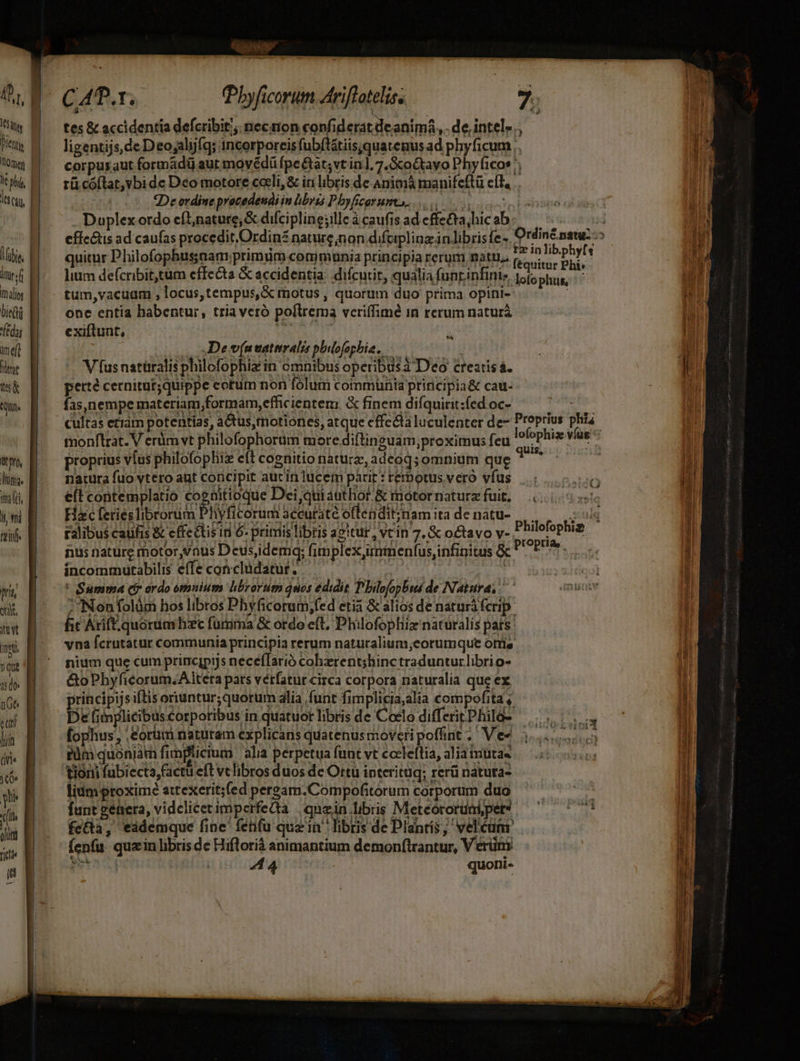 CAP.I. Phyſicorum Ariſtotelis. 7
tes & accidentia deſcribit, nec non conſiderat de animâ, de intel-
ligentijs, de Deo, alijſq; incorporeis ſubſtātiis, quatenus ad phyſicum
corpus aut formādū aut movēdū ſpectāt, vt in l. 7. & octavo Phyſicorū
rū cōſtat, vbi de Deo motore cœli, & in libris de animâ manifeſtū eſt.
De ordine procedendi in libris Phyſicorum.
Duplex ordo eſt, naturę, & diſciplinę; ille à cauſis ad effecta, hic ab
effectis ad cauſas procedit. Ordinē naturę, non diſciplinæ in libris ſe-
quitur Philoſophus; nam primùm communia principia rerum natu-
lium deſcribit, tum effecta & accidentia diſcutit, qualia ſunt infini-
tum, vacuum, locus, tempus, & motus, quorum duo prima opini-
one entia habentur, tria verò poſtrema veriſſimè in rerum naturâ
exiſtunt.
Ordinē natu-
ræ in lib. phyſ
ſequitur Phi-
loſophus.
De vſu naturalis philoſophiæ.
Vſus naturalis philoſophiæ in omnibus operibus à Deo creatis a-
pertè cernitur; quippe eorum non ſolum communia principia & cau-
ſas, nempe materiam, formam, efficientem & finem diſquirit: ſed oc-
cultas etiam potentias, actus, motiones, atque effecta luculenter de-
monſtrat. Verùm vt philoſophorum more diſtinguam, proximus ſeu
proprius vſus philoſophiæ eſt cognitio naturæ, adeoq; omnium quę
natura ſuo vtero aut concipit aut in lucem parit: remotus verò vſus
eſt contemplatio cognitioque Dei, qui author & motor naturæ fuit.
Hæc ſeries librorum Phyſicorum accuratè oſtendit; nam ita de natu-
ralibus cauſis & effectis in 6. primis libris agitur, vt in 7. & octavo v-
nus naturę motor, vnus Deus, idemq; ſimplex, immenſus, infinitus &
incommutabilis eſſe concludatur.
Proprius phi-
loſophiæ vſus
quis.
Philoſophiæ
propria.
Summa & ordo omnium librorum quos edidit Philoſophus de Natura.
Non ſolùm hos libros Phyſicorum, ſed etiā & alios de naturâ ſcrip
ſit Ariſt. quorum hæc ſumma & ordo eſt. Philoſophiæ naturalis pars
vna ſcrutatur communia principia rerum naturalium, eorumque om-
nium quę cum principijs neceſſariò cohærent; hinc traduntur libri o-
cto Phyſicorum. Altera pars verſatur circa corpora naturalia quę ex
principijs iſtis oriuntur; quorum alia ſunt ſimplicia, alia compoſita.
De ſimplicibus corporibus in quatuor libris de Cœlo differit Philo-
ſophus, eorum naturam explicans quatenus moveri poſſint. Ve-
rùm quoniam ſimplicium alia perpetua ſunt vt cœleſtia, alia muta-
tioni ſubiecta, factū eſt vt libros duos de Ortu interituq; rerū natura-
lium proximè attexerit; ſed pergam. Compoſitorum corporum duo
ſunt genera, videlicet imperfecta quæ in libris Meteororum, per-
fecta, eademque ſine ſenſu quæ in libris de Plantis, vel cum
ſenſu quæ in libris de Hiſtoriâ animantium demonſtrantur. Verùm
A 4 quoni-